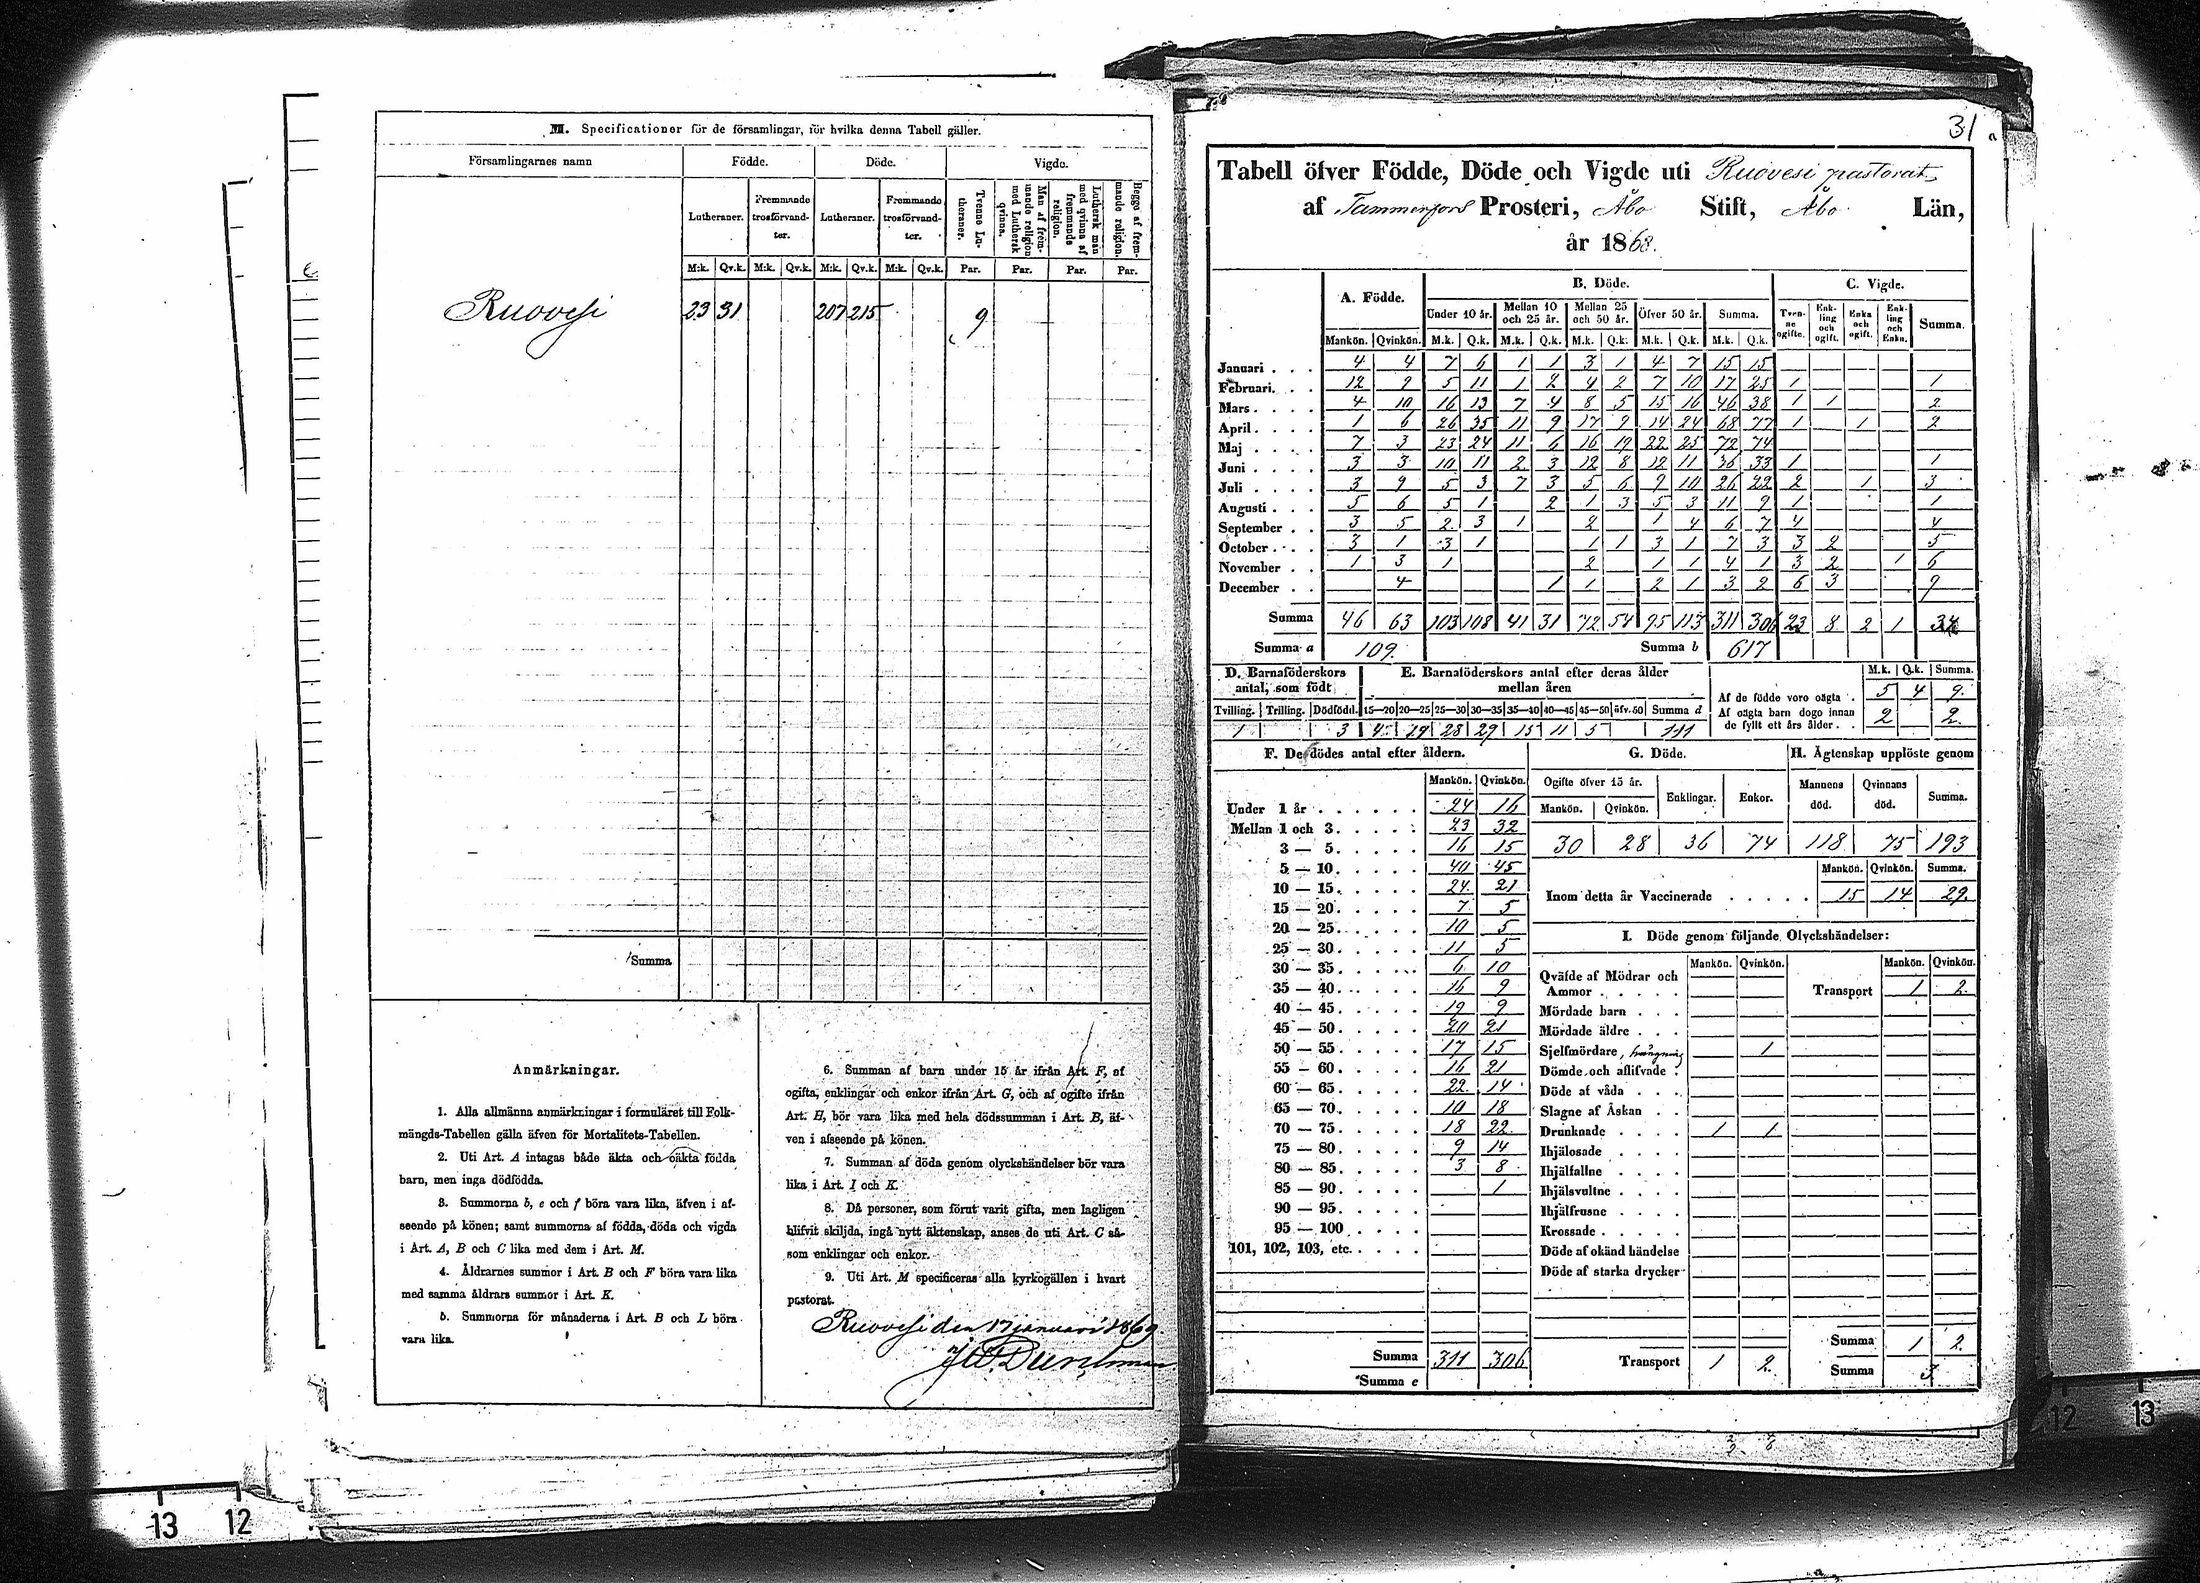 M. Specificationer för de församlingar, för hvilka denna Tabell gäller.
Församlingarnes namn Födde. Döde. Vigde.
Lutheraner. Fremmande trosförvandter. Lutheraner. Fremmande trosförvandter. Tvenne Lutheraner. Man af fremmande religion med Luthersk qvinna. Luthersk man med qvinna af fremmande religion. Begge af fremmande religion.
M:k. Qv.k. M:k. Qv.k. M:k. Qv.k. M:k. Qv.k. Par. Par. Par. Par.
Ruovesi 23 31 207 215 9
Summa
Anmärkningar.
1. Alla allmänna anmärkningar i formuläret till Folk-
mängds-Tabellen gälla äfven för Mortalitets-Tabellen.
2. Uti Art. A intagas både äkta och oäkta födda
barn, men inga dödfödda.
3. Summorna b, e och f böra vara lika, äfven i af-
seende på könen; samt summorna af födda, döda och vigda
i Art. A, B och C lika med dem i Art. M.
4. Åldrarnes summor i Art. B och F böra vara lika
med samma åldrars summor i Art. K.
5. Summorna för månaderna i Art. B och L böra
vara lika.
6. Summan af barn under 15 år ifrån Art. F, af
ogifta, enklingar och enkor ifrån Art. G, och af ogifte ifrån
Art. H, bör vara lika med hela dödssumman i Art. B, äf-
ven i afseende på könen.
7. Summan af döda genom olyckshändelser bör vara
lika i Art. I och K.
8. Då personer, som förut varit gifta, men lagligen
blifvit skiljda, ingå nytt äktenskap, anses de uti Art. C så-
som enklingar och enkor.
9. Uti Art. M specificeras alla kyrkogällen i hvart
pastorat.
Ruovesi den 17 januari 1869.
31
Tabell öfver Födde, Döde och Vigde uti Ruovesi pastorat
af Tammerfors Prosteri, Åbo Stift, Åbo Län,
år 1868.
A. Födde. B. Döde. C. Vigde.
Under 10 år. Mellan 10 och 25 år. Mellan 25 och 50 år. Öfver 50 år. Summa. Tvenne ogifte. Enkling och ogift. Enka och ogift. Enkling och Enka. Summa.
Mankön. Qvinkön. M.k. Q.k. M.k. Q.k. M.k. Q.k. M.k. Q.k. M.k. Q.k.
Januari 4 4 7 6 1 1 3 1 4 7 15 15
Februari. 12 9 5 11 1 2 4 2 7 10 17 25 1 1
Mars 4 10 16 13 7 4 8 5 15 16 46 38 1 1 2
April 1 6 26 35 11 9 17 9 14 24 68 77 1 1 2
Maj 7 3 23 24 11 6 16 19 22 25 72 74
Juni 3 3 10 11 2 3 12 8 12 11 36 33 1 1
Juli 3 9 5 3 7 3 5 6 9 10 26 22 2 1 3
Augusti 5 6 5 1 2 1 3 5 3 11 9 1 1
September 3 5 2 3 1 2 1 4 6 7 4 4
October 3 1 3 1 1 1 3 1 7 3 3 2 5
November 1 3 1 2 1 1 4 1 3 2 1 6
December 4 1 1 2 1 3 2 6 3 9
Summa 46 63 103 108 41 31 72 54 95 113 311 306 23 8 2 1 34
Summa a 109. Summa b 617
D. Barnaföderskors antal, som födt E. Barnaföderskors antal efter deras ålder mellan åren
M.k. Q.k. Summa.
Af de födde voro oägta 5 4 9.
Af oägta barn dogo innan de fyllt ett års ålder 2 2.
Tvilling. Trilling. Dödfödd. 15—20 20—25 25—30 30—35 35—40 40—45 45—50 öfv. 50 Summa d
1 3 4 19 28 29 15 11 5 111
F. De dödes antal efter åldern. G. Döde. H. Ägtenskap upplöste genom
Mankön. Qvinkön. Ogifte öfver 15 år. Mankön. Qvinkön. Enklingar. Enkor. Mannens död. Qvinnans död. Summa.
30 28 36 74 118 75 193
Mankön. Qvinkön. Summa.
Inom detta år Vaccinerade 15 14 29.
Under 1 år 24 16
Mellan 1 och 3 23 32
3 — 5 16 15
5 — 10 40 45
10 — 15 24 21
15 — 20 7 5
20 — 25 10 5
25 — 30 11 5
30 — 35 6 10
35 — 40 16 9
40 — 45 19 9
45 — 50 20 21
50 — 55 17 15
55 — 60 16 21
60 — 65 22 14
65 — 70 10 18
70 — 75 18 22
75 — 80 9 14
80 — 85 3 8
85 — 90 1
90 — 95
95 — 100
101, 102, 103, etc.
Summa 311 306
Summa e
I. Döde genom följande Olyckshändelser:
Mankön. Qvinkön. Mankön. Qvinkön.
Qväfde af Mödrar och Ammor Transport 1 2.
Mördade barn
Mördade äldre
Sjelfmördare, hängning 1
Dömde och aflifvade
Döde af våda
Slagne af Åskan
Drunknade 1 1
Ihjälosade
Ihjälfallne
Ihjälsvultne
Ihjälfrusne
Krossade
Döde af okänd händelse
Döde af starka drycker
Summa 1 2.
Transport 1 2. Summa 3
13 12 12 13